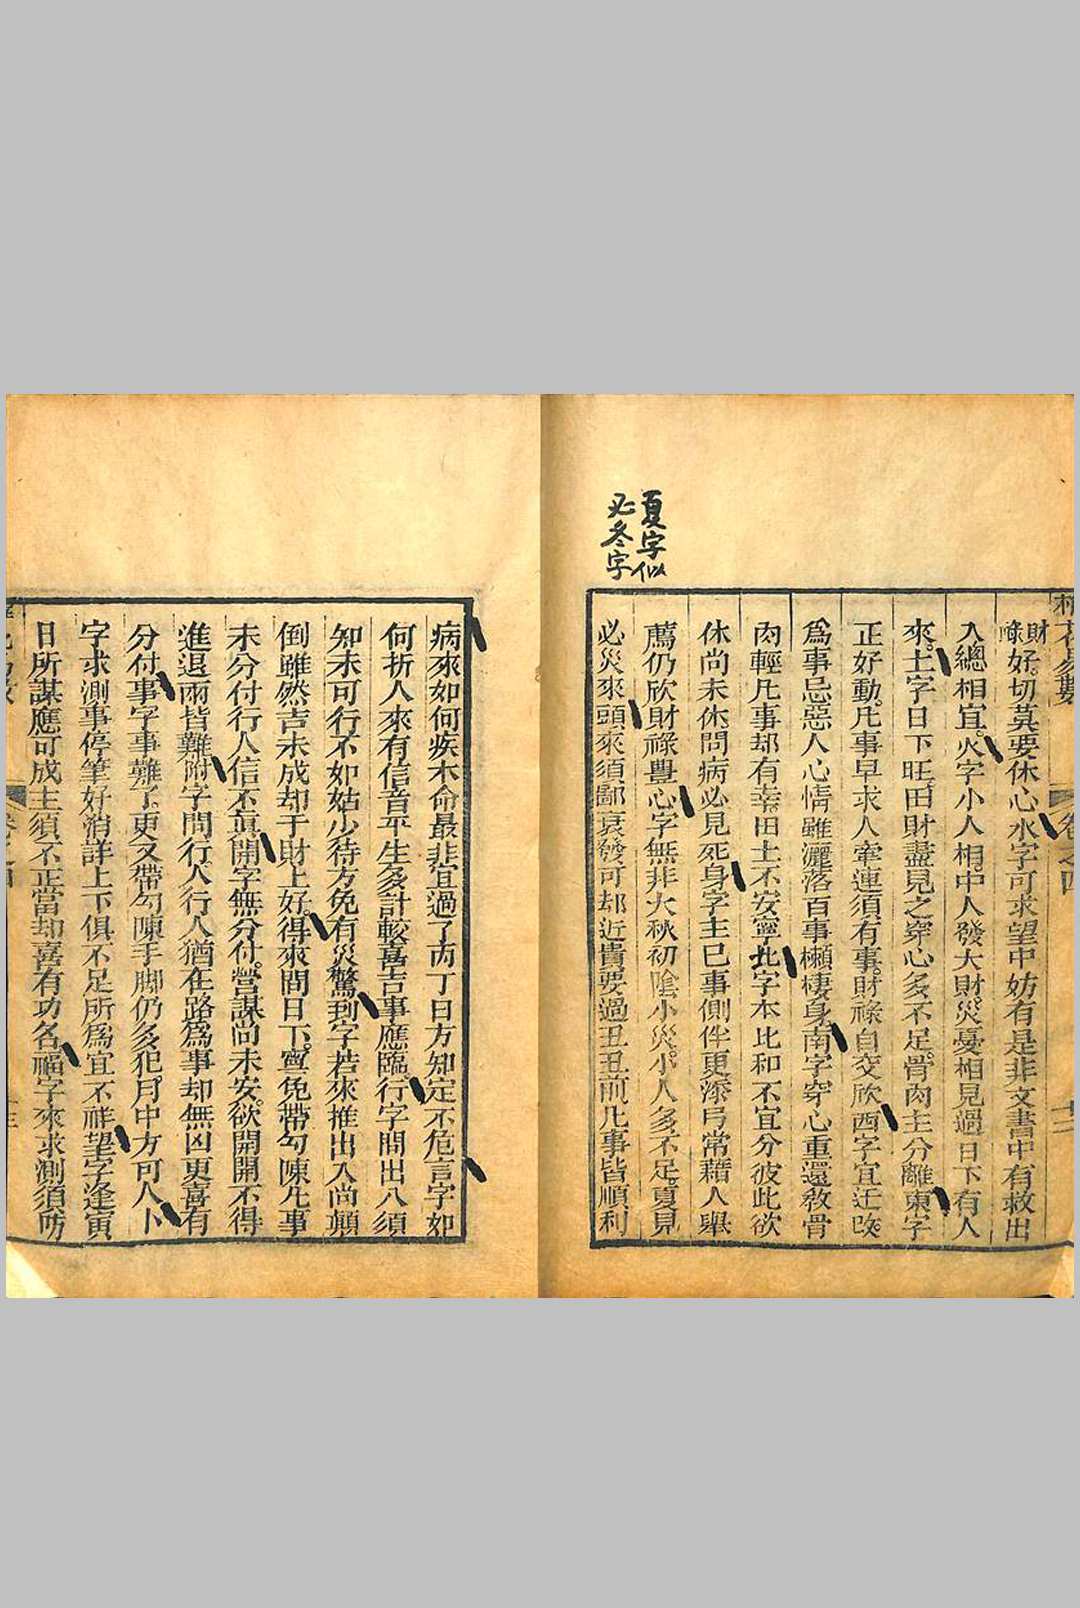 夏字似
必冬字
梅花易數
卷之四
十二
財
祿好。切莫要休心水字可求望中妨有是非文書中有救出
入總相宜。火字小人相。中人發大財災憂相見過日下有人
來。土字日下旺。田財盡見之穿心多不足。骨肉主分離東字
正好動。凡事早求人牽連須有事。財祿自交欣西字宜迁改
爲事忌惡人心情雖灑落百事懶棲身南字穿心重還敎骨
肉輕凡事却有幸。田土不安寧北字本比和不宜分彼此欲
休尚未休問病必見死身字主巳事側伴更添弓常藉人舉
薦仍欣財祿豊心字無非大秋初陰小災。小人多不足。夏見
必災來頭來須鄙衰發可却近貴要過丑丑前凡事皆順利
病來如何疾木命最非宜過了丙丁日方知定不危言字如
何折人來有信音平生多計較喜吉事應臨。行字問出入須
知未可行不如姑少待方免有災驚到字若來推出入尚顛
倒雖然吉未成却于財上好。得來問日下。寧免帶勾陳凡事
未分付行人信不眞。開字無分付。營謀尚未安。欲開開不得
進退兩皆難附字問行人行人猶在路爲事却無凶更喜有
分付事字事難了。更又帶勾陳手脚仍多犯。月中方可人卜
字求測事停筆好消詳上下俱不足所爲宜不祥望字逢寅
日所謀應可成主須不正當却喜有功名福字來求測須防